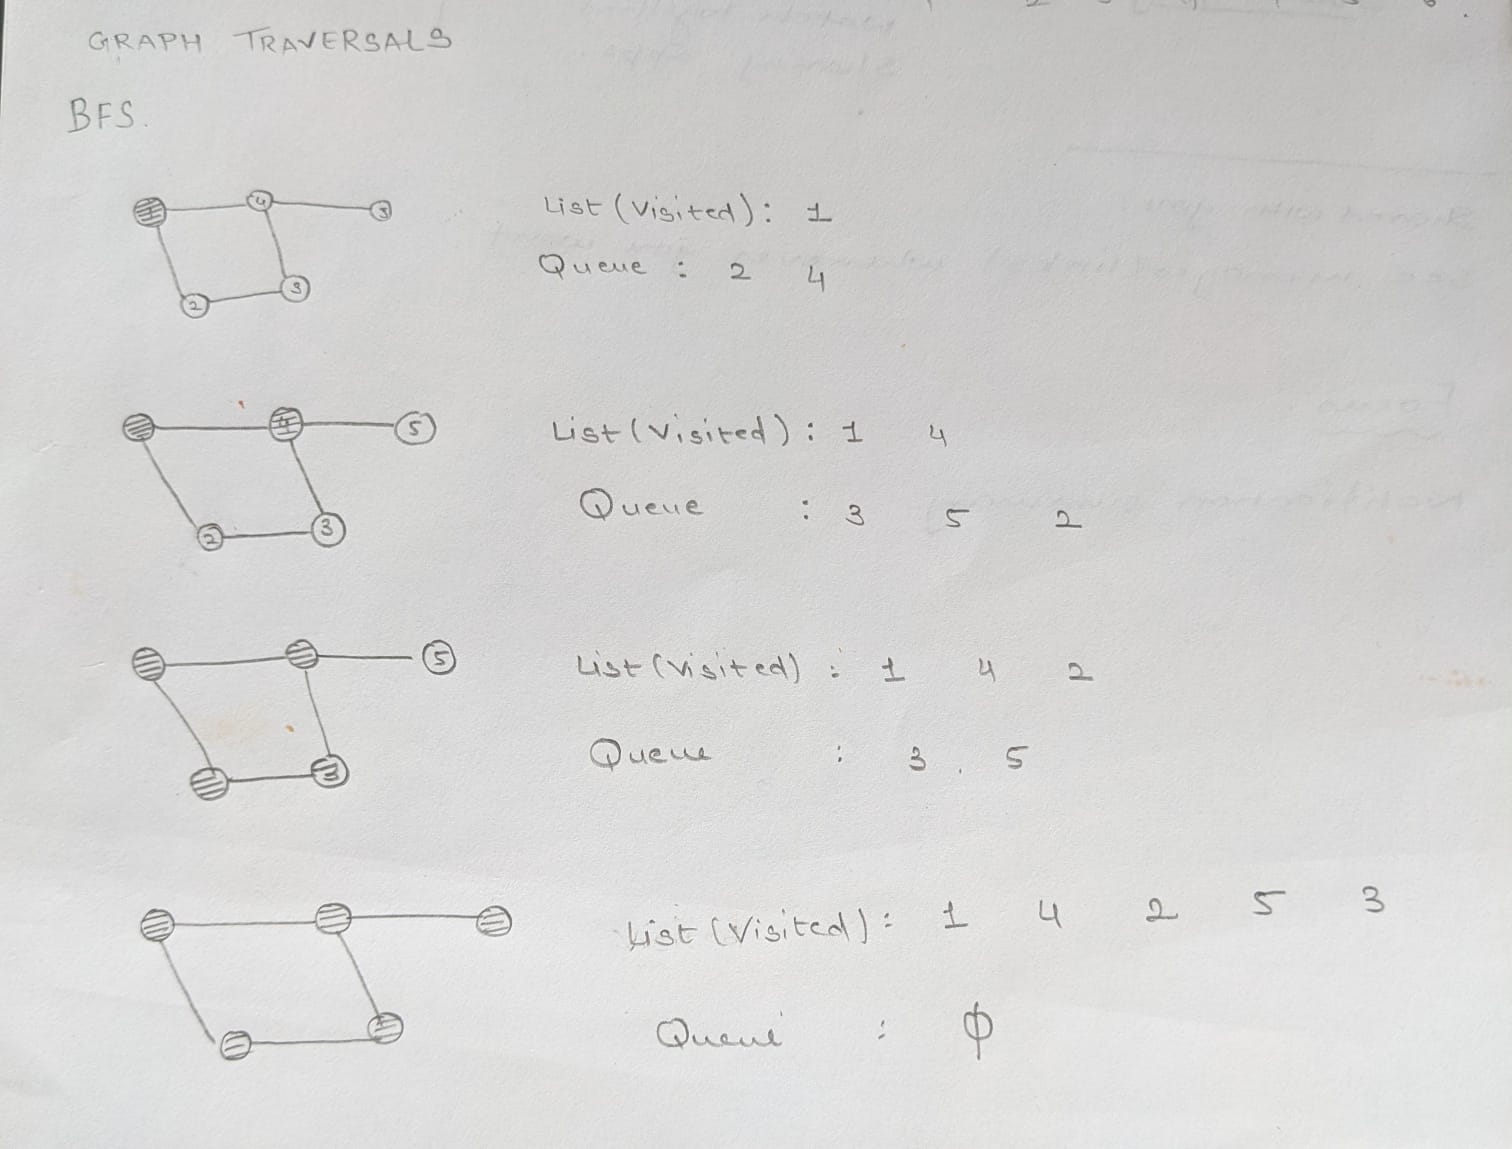 GRAPH TRAVERSALS
BFS.
1 4 3
List (Visited) : 1
Queue : 2 4
2 3
4 5
List (Visited) : 1 4
Queue : 3 5 2
2 3
5
List (Visited) : 1 4 2
Queue : 3 . 5
3
List (Visited) : 1 4 2 5 3
Queue : ϕ